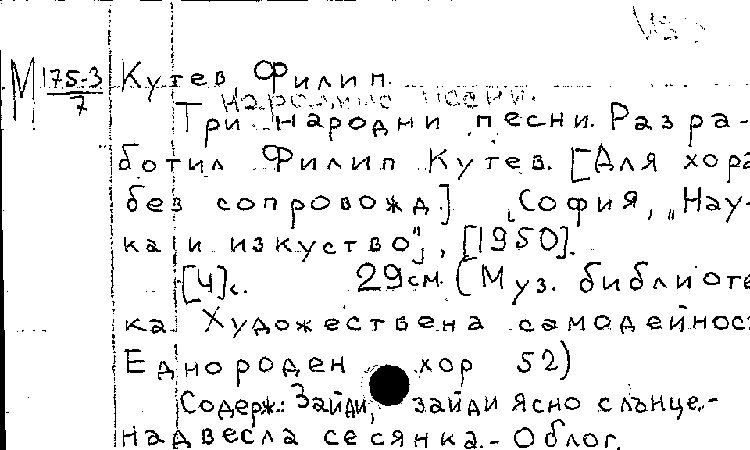 М 175-3/7 Кутев Филип.
народные песни.
Три народни песни. Разра-
ботил Филип Кутев. [Для хора
без сопровожд.] София, "Нау-
ка и изкуство", [1950].
[4]с. 29см (Муз. библиоте
ка Художествена самодейнос
Еднороден хор 52)
Содерж.: Зайди, зайди ясно слънце.-
надвесла се сянка.- Облог.